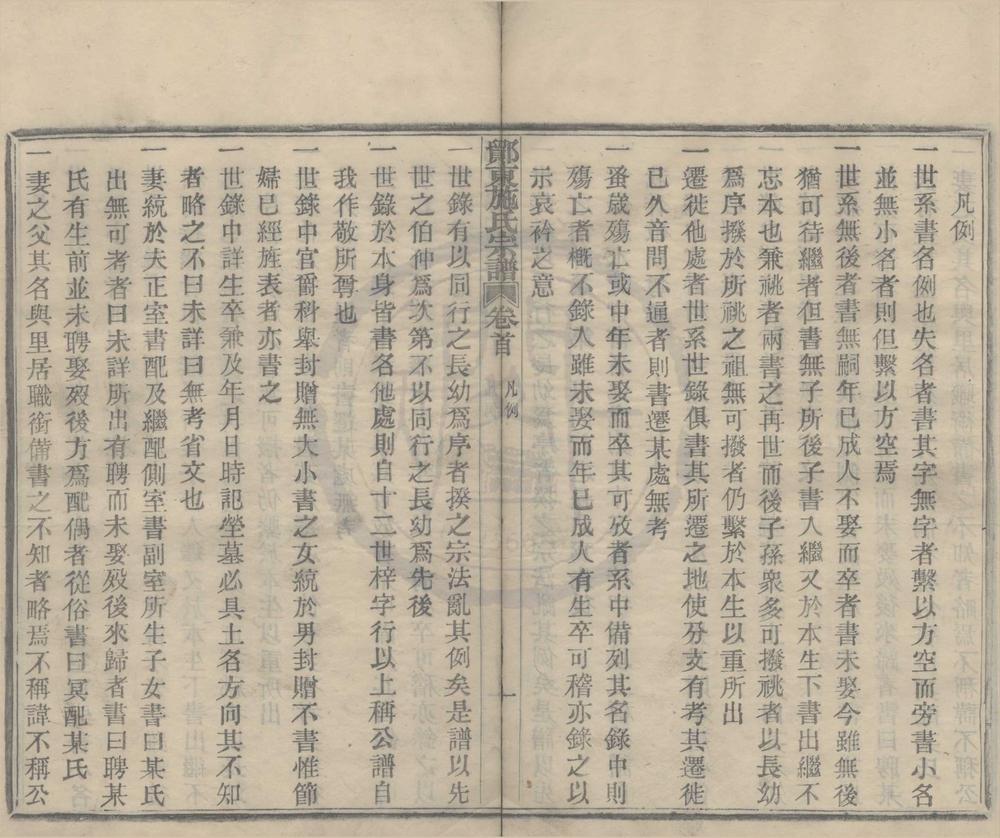 一世系書名例也失名者書其字無字者繫以方空而旁書小名
並無小名者則但繫以方空焉
一世系無後者書無嗣年已成人不娶而卒者書未娶今雖無後
猶可待繼者但書無子所後子書入繼又於本生下書出繼不
忘本也兼祧者兩書之再世而後子孫衆多可撥祧者以長幼
爲序撥於所祧之祖無可撥者仍繫於本生以重所出
一遷徙他處者世系世錄俱書其所遷之地使分支有考其遷徙
已久音問不通者則書遷某處無考
一蚤歲殤亡或中年未娶而卒其可攷者系中備列其名錄中則
殤亡者槪不錄入雖未娶而年已成人有生卒可稽亦錄之以
示哀矜之意
鄮東施氏宗譜 卷首 凡例 一
一世錄有以同行之長幼爲序者揆之宗法亂其例矣是譜以先
世之伯仲爲次第不以同行之長幼爲先後
一世錄於本身皆書名他處則自十三世梓字行以上稱公譜自
我作敬所尊也
一世錄中官爵科舉封贈無大小書之女統於男封贈不書惟節
婦已經旌表者亦書之
一世錄中詳生卒兼及年月日時記塋墓必具土名方向其不知
者略之不曰未詳曰無考省文也
一妻統於夫正室書配及繼配側室書副室所生子女書曰某氏
出無可考者曰未詳所出有聘而未娶歿後來歸者書曰聘某
氏有生前並未聘娶歿後方爲配偶者從俗書曰冥配某氏
一妻之父其名與里居職銜備書之不知者略焉不稱諱不稱公